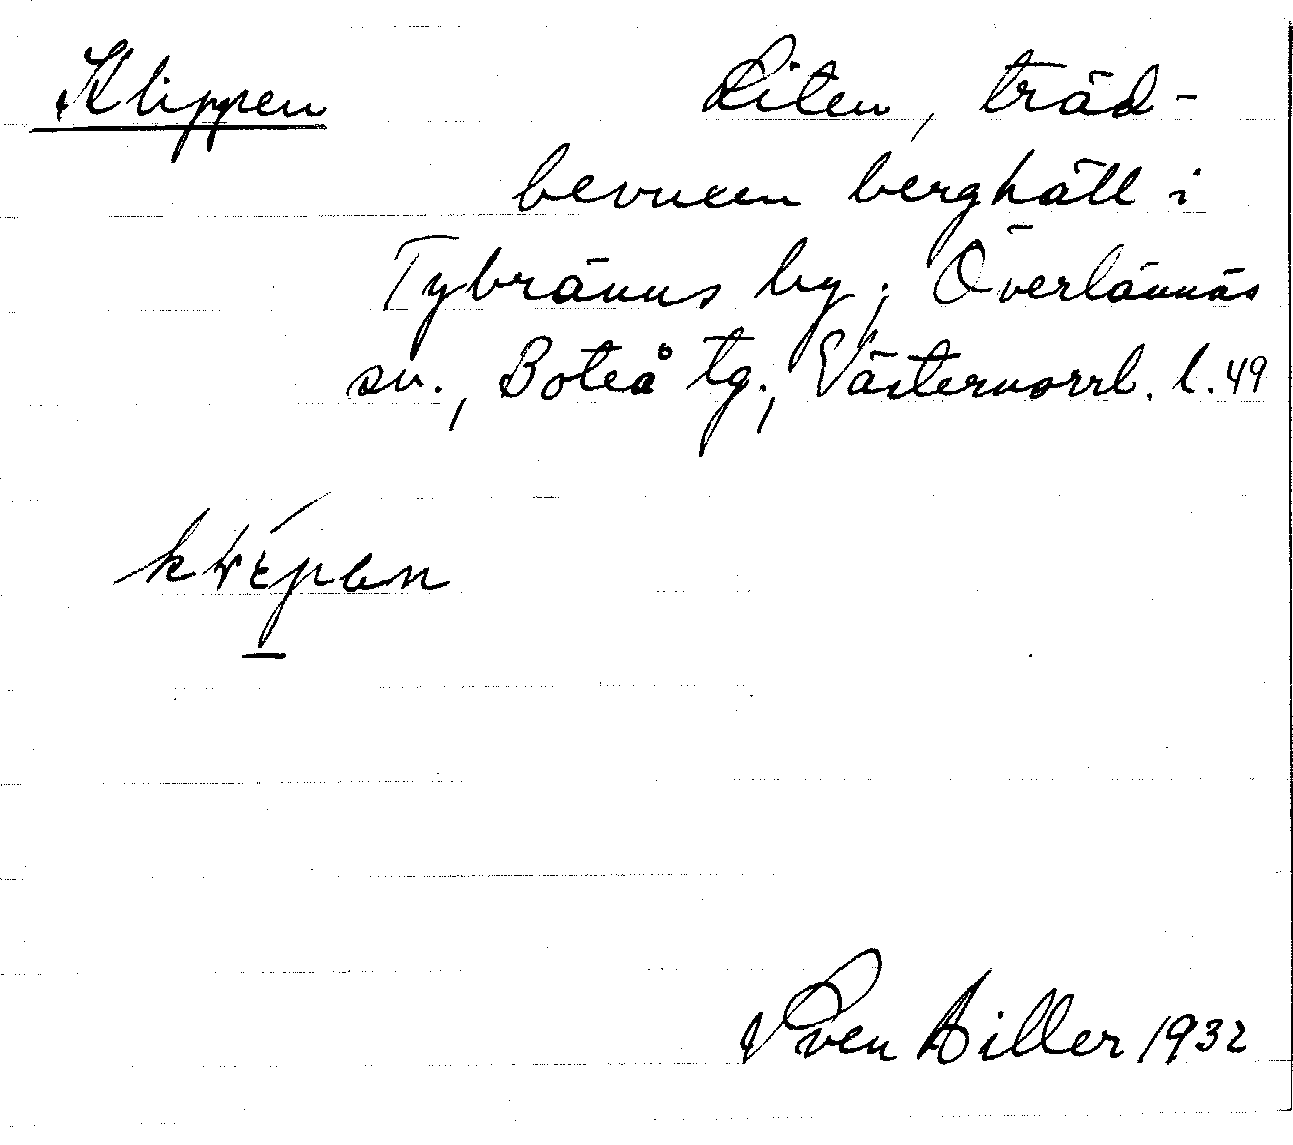 Klippen Liten, träd-
bevuxen berghäll i
Tybränns by, Överlännäs
sn., Boteå tg., Västernorrl. l. 49
Sven Hiller 1932